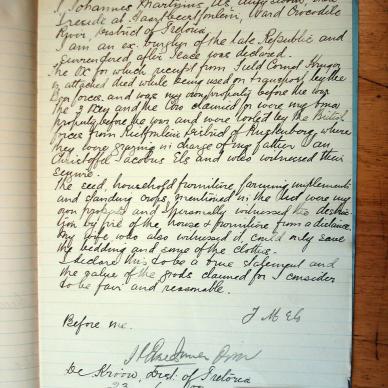 I Johannes Martinus Els duly sworn, state
I reside at Haartbeestfontein, Ward Crocodile
River, District of Pretoria
I am an ex. burgher of the late Republic and
surrendered after Peace was declared.
The Ox for which receipt from Field Cornet Kruger
is attached died while being used on transport by the
forces and was my own property before the war.
The Oxen and the Cows claimed for were my bona
property before the war and were looted by the British
forces from Rietfontein District of Rustenburg where
they were grazing in charge of my father Jan
Christoffel Jacobus Els and who witnessed their
seizure.
The seed, household furniture, farming implements
and standing crops, mentioned in the list were my
own property and I personally witnessed the destruc-
tion by fire of the house & furniture from a distance.
My wife who also witnessed it could only save
the bedding and some of the clothes.
I declare this to be a true statement and
the value of the goods claimed for I consider
to be fair and reasonable.
J M Els
Before me.
De Kroon, Dist. of Pretoria